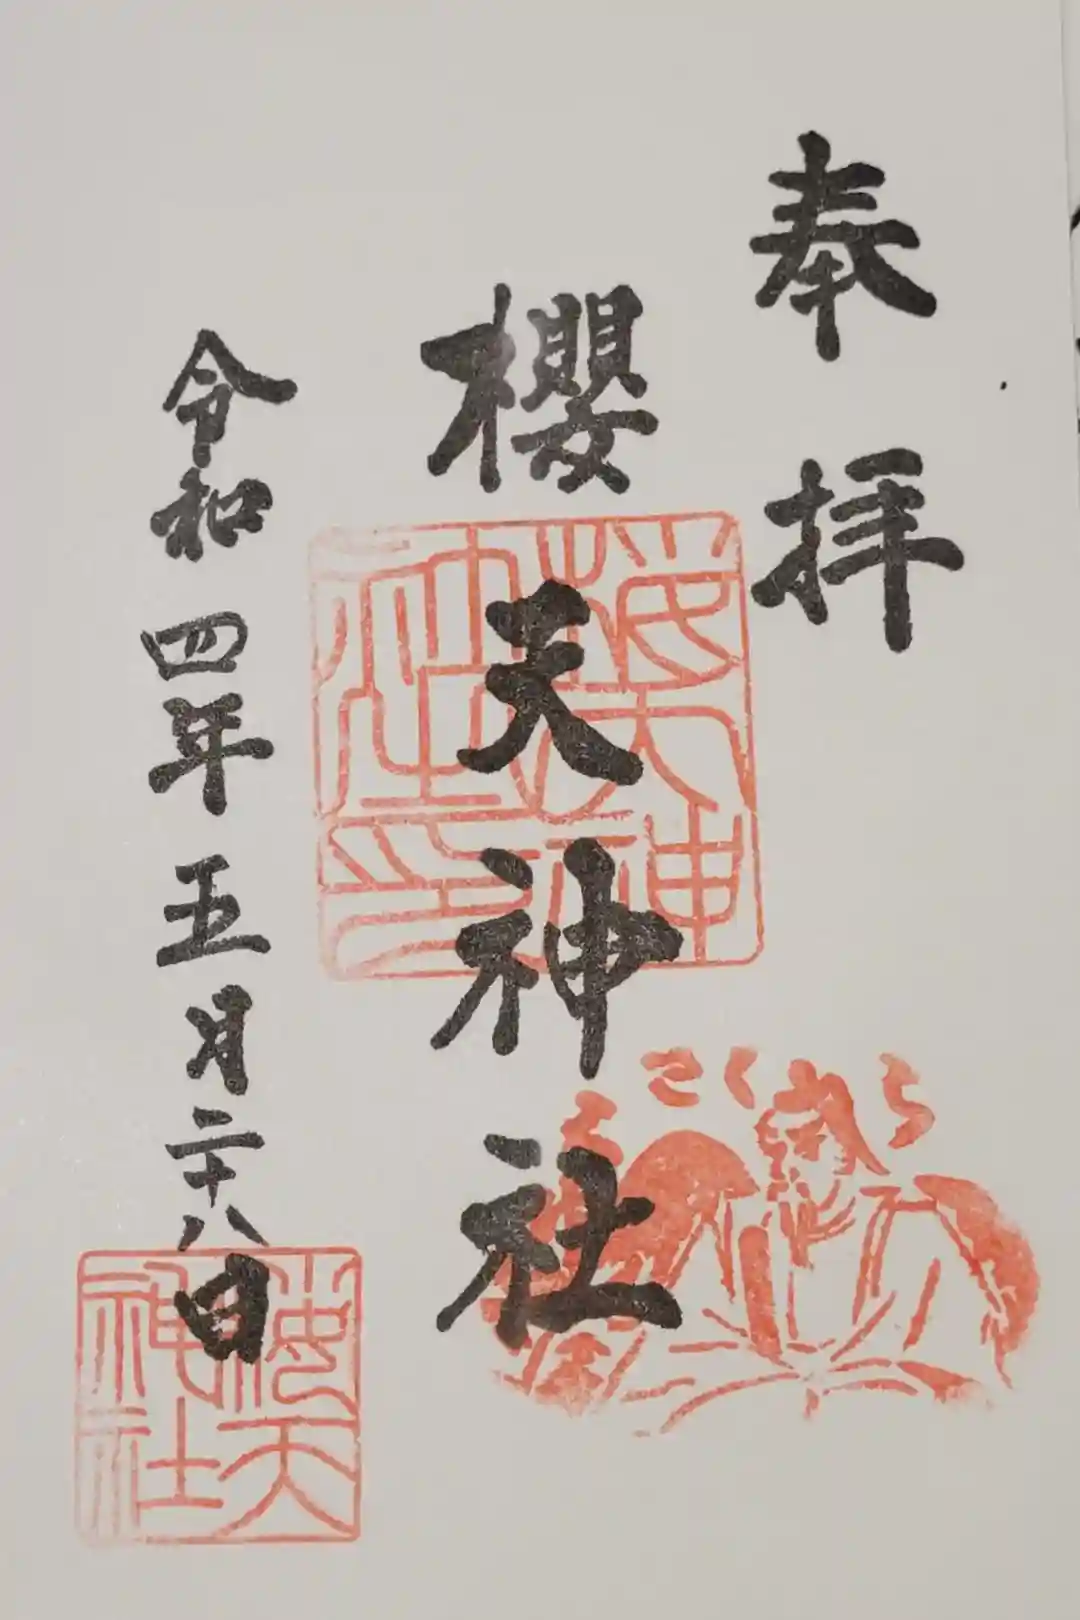 奉拝
櫻天神社
令和四年五月二十八日
櫻天神社印
櫻天神社